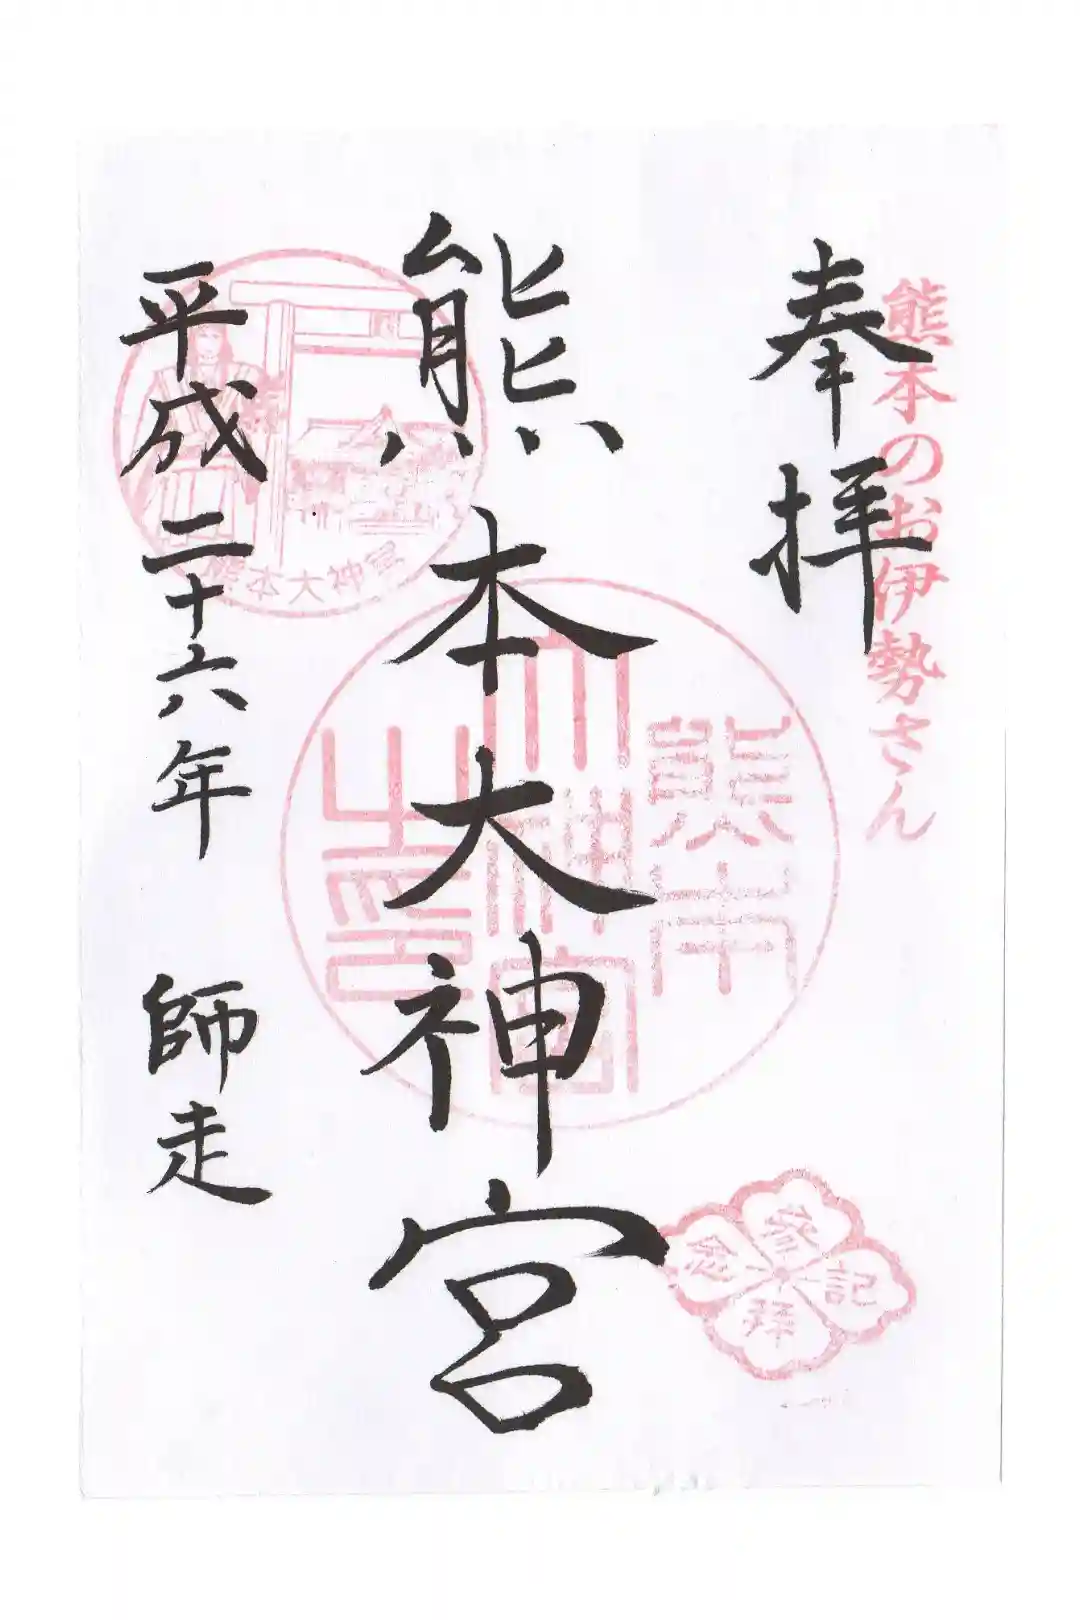 熊本のお伊勢さん
奉拝
熊本大神宮
平成二十六年 師走
熊本
大神宮
之印
熊本大神宮
参拝記念